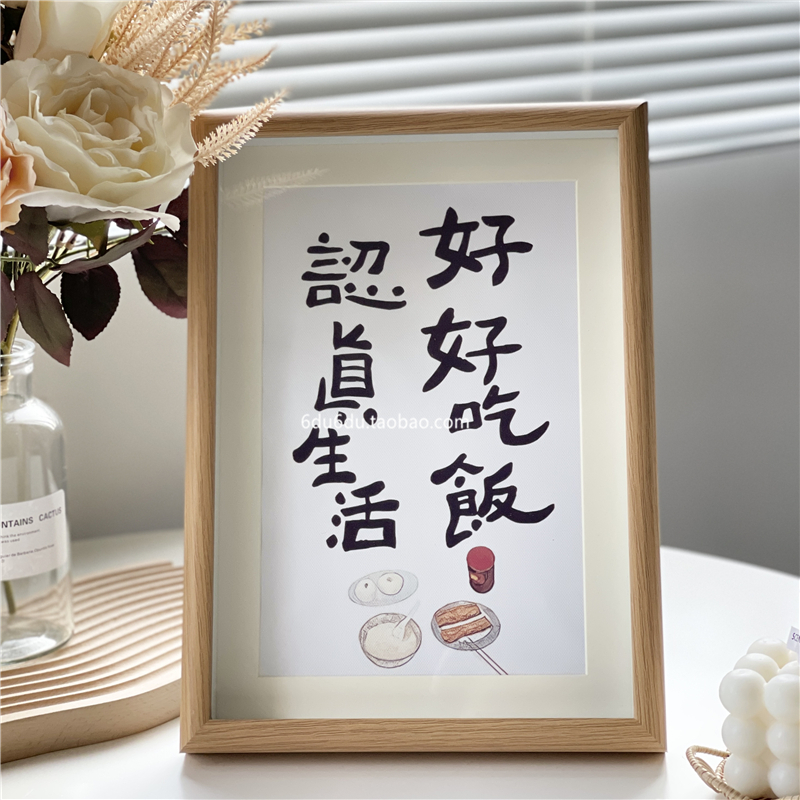 好好吃飯
認真生活
6du6du.taobao.com
NTAINS CACTUS